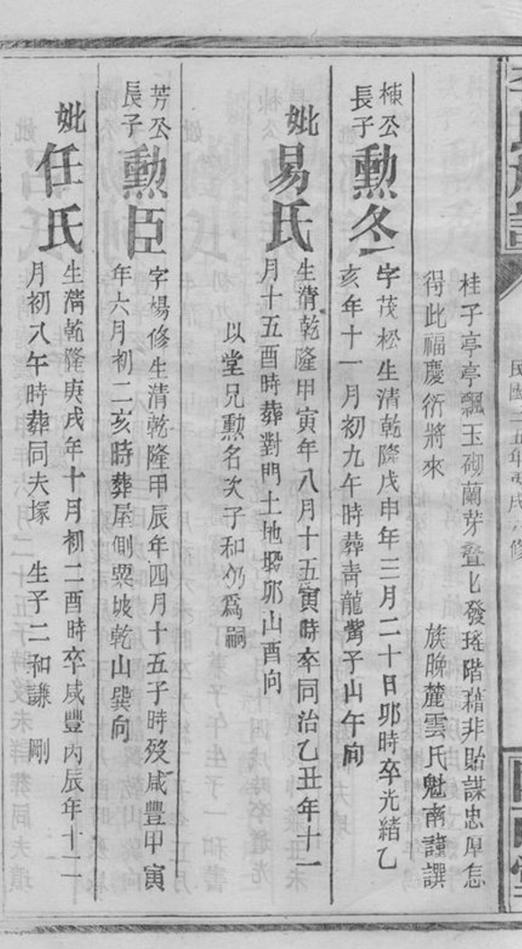 桂子亭亭飄玉砌蘭芽叠匕發瑤階藉非貽謀忠厚怎
得此福慶衍將來
族晚麓雲氏魁南謹譔
棟公長子
勲冬
字茂松生清乾隆戊申年三月二十日卯時卒光緒乙
亥年十一月初九午時葬青龍嘴子山午向
妣易氏
生清乾隆甲寅年八月十五寅時卒同治乙丑年十二
月十五酉時葬對門土地塅卯山酉向
以堂兄勲名次子和仍為嗣
芳公長子
勲臣
字楊修生清乾隆甲辰年四月十五子時歿咸豐甲寅
年六月初二亥時葬屋側粟坡乾山巽向
妣任氏
生清乾隆庚戌年十月初二酉時卒咸豐丙辰年十二
月初八午時葬同夫塚 生子二和謙 剛